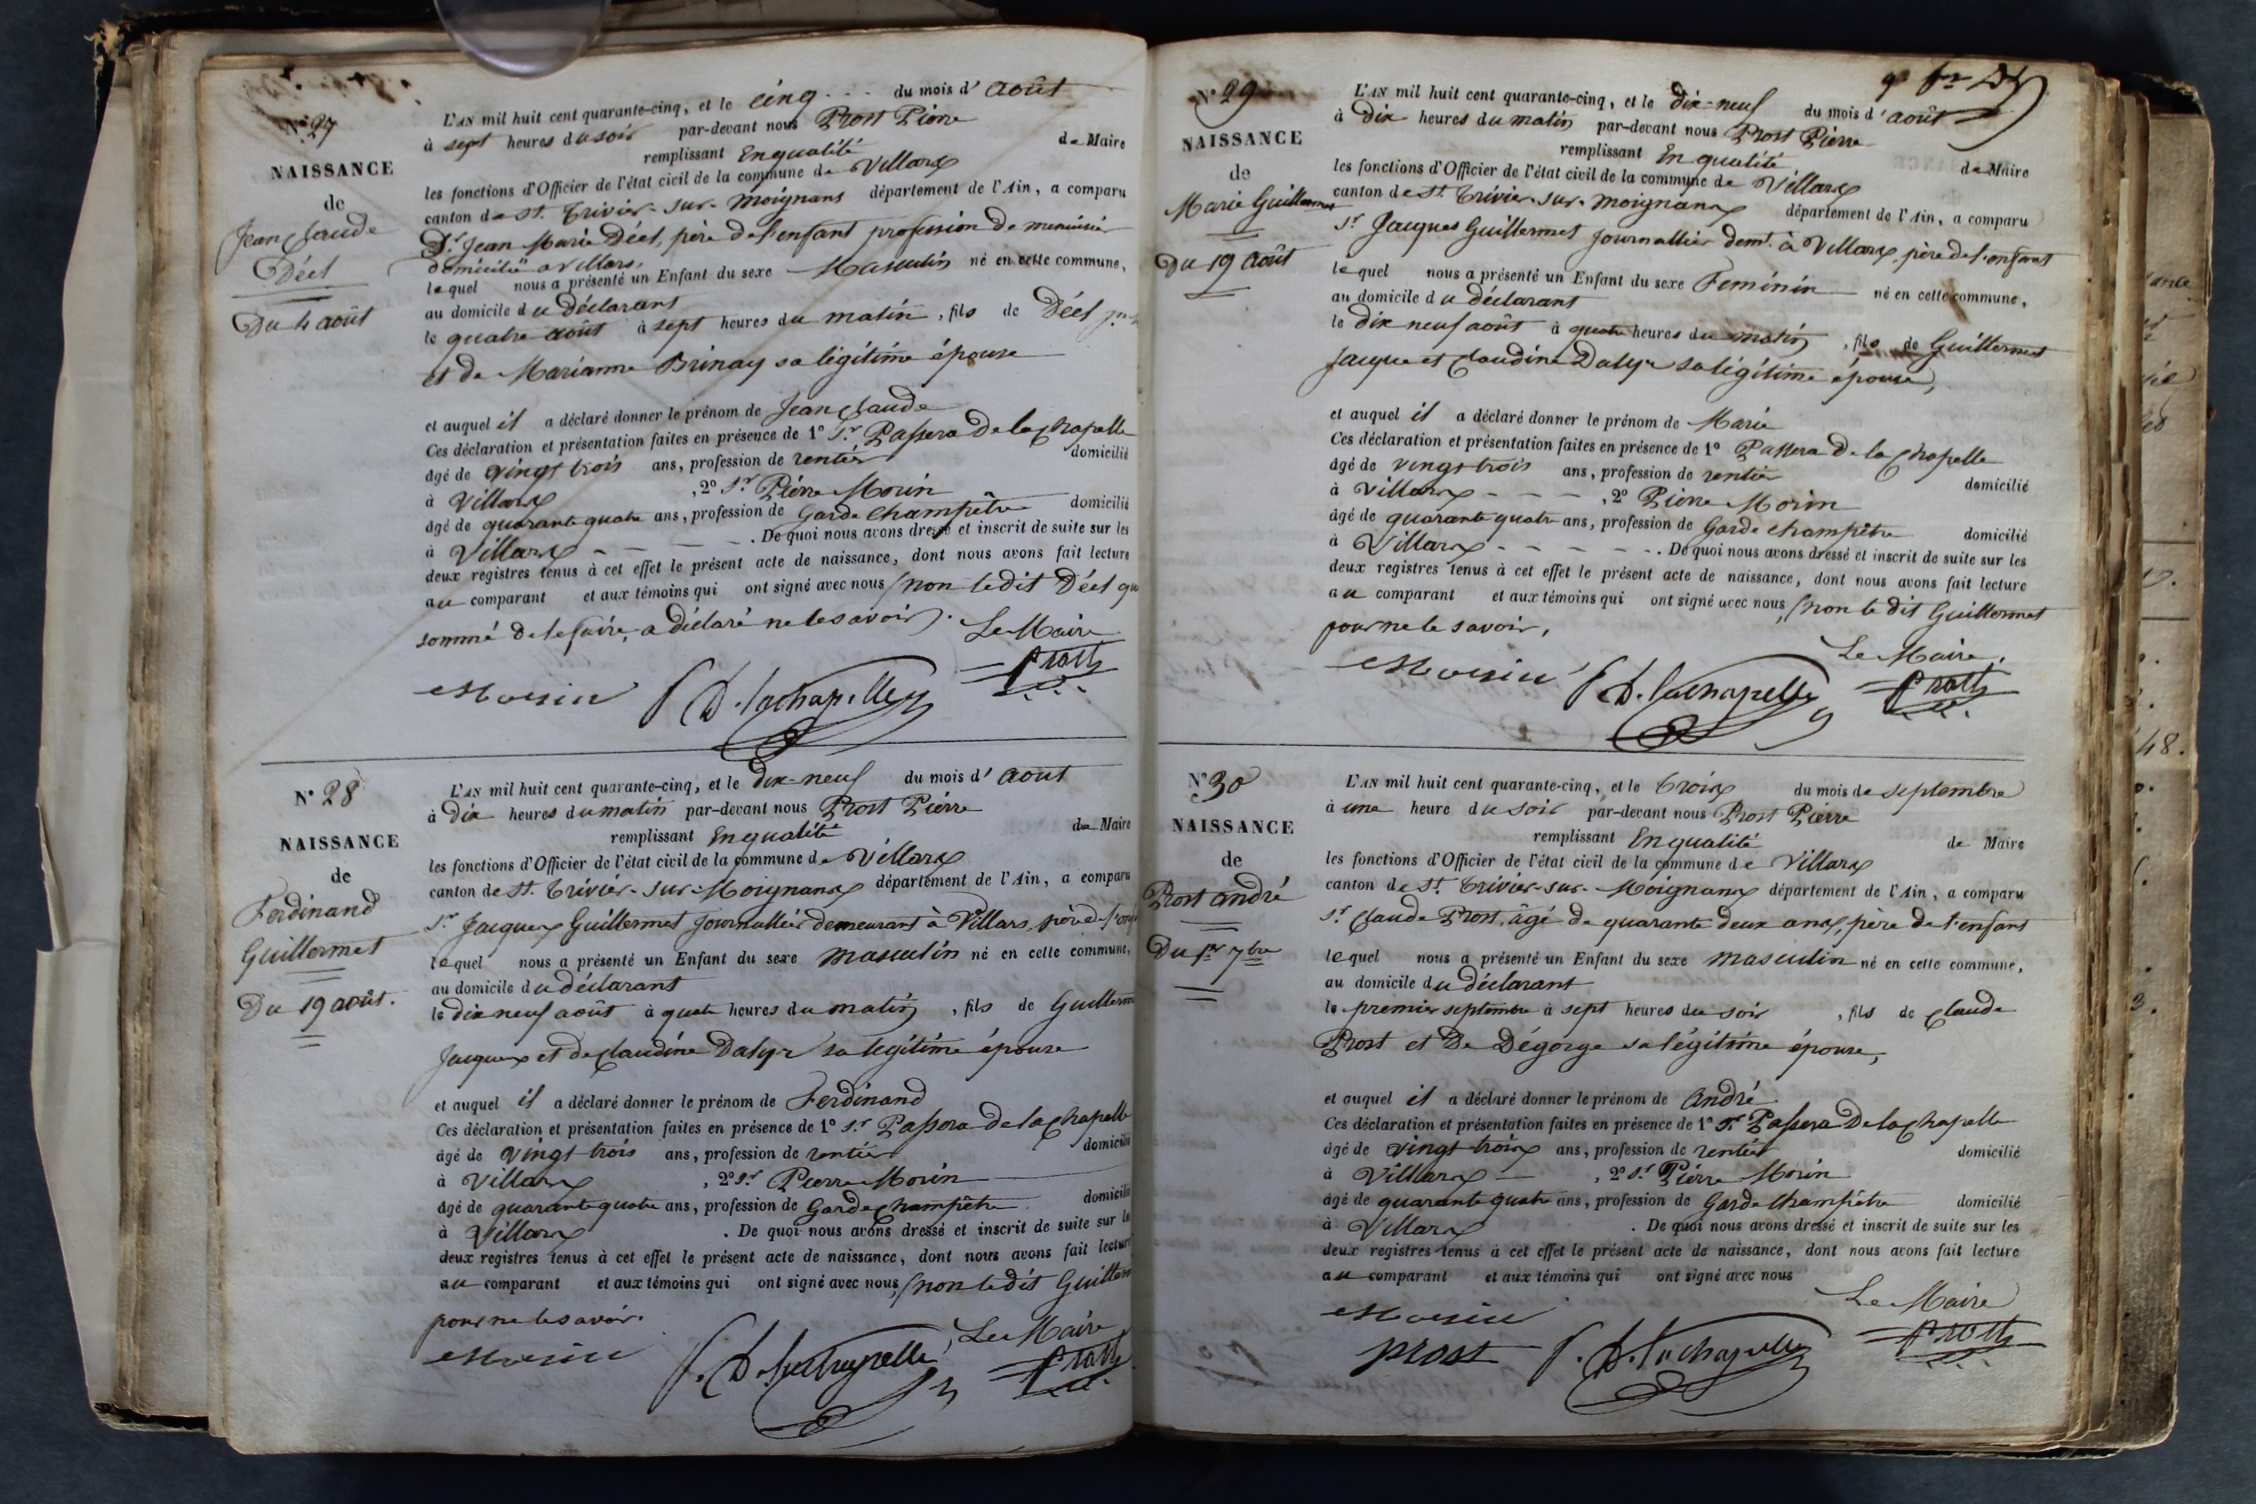 N° 27
NAISSANCE
de
Jean Claude
Déel
Du 4 août
L'AN mil huit cent quarante-cinq, et le cinq - - - du mois d'août
à sept heures du soir par-devant nous Prost Pierre
remplissant En qualité de Maire
les fonctions d'Officier de l'état civil de la commune de Villars
canton de St. Trivier-sur-moignans département de l'Ain, a comparu
Sr Jean Marie Déel, père de l'enfant profession de menuisier
domicilié à Villars,
lequel nous a présenté un Enfant du sexe Masculin né en cette commune,
au domicile du déclarant
le quatre août à sept heures du matin, fils de Déel
et de Marianne Brinay sa légitime épouse
et auquel il a déclaré donner le prénom de Jean Claude
Ces déclaration et présentation faites en présence de 1° Sr Passera De la Chapelle
âgé de vingt trois ans, profession de rentier domicilié
à Villars, 2° Sr Pierre Morin
âgé de quarante quatre ans, profession de Garde Champêtre domicilié
à Villars - - - - . De quoi nous avons dressé et inscrit de suite sur les
deux registres tenus à cet effet le présent acte de naissance, dont nous avons fait lecture
au comparant et aux témoins qui ont signé avec nous (non le dit Déel
sommé de le faire, a déclaré ne le savoir). Le Maire
Morin P. D. lachapelle Prost
N° 28
NAISSANCE
de
Ferdinand
Guillermet
Du 19 août.
L'AN mil huit cent quarante-cinq, et le dix-neuf du mois d'aout
à Dix heures du matin par-devant nous Prost Pierre
remplissant En qualité de Maire
les fonctions d'Officier de l'état civil de la commune de Villars
canton de St. Trivier-sur-Moignans département de l'Ain, a comparu
Sr Jacques Guillermet Journallier demeurant à Villars, père de
lequel nous a présenté un Enfant du sexe masculin né en cette commune,
au domicile du déclarant
le dix neuf août à quatre heures du matin, fils de Guillerm
Jacques et de Claudine Dalyr sa légitime épouse
et auquel il a déclaré donner le prénom de Ferdinand
Ces déclaration et présentation faites en présence de 1° Sr Passera de la Chapelle
âgé de vingt trois ans, profession de rentier domicilié
à Villars, 2° Sr Pierre Morin
âgé de quarante quatre ans, profession de Garde Champêtre domicilié
à Villars. De quoi nous avons dressé et inscrit de suite sur le
deux registres tenus à cet effet le présent acte de naissance, dont nous avons fait lecture
au comparant et aux témoins qui ont signé avec nous, (non le dit Guillerm
pour ne le savoir.
Le Maire
Morin P. D. lachapelle Prost
N° 29
NAISSANCE
de
Marie Guillermet
Du 19 août
L'AN mil huit cent quarante-cinq, et le dix-neuf du mois d'août
à Dix heures du matin par-devant nous Prost Pierre
remplissant En qualité de Maire
les fonctions d'Officier de l'état civil de la commune de Villars
canton de St. Trivier-sur-moignans département de l'Ain, a comparu
Sr Jacques Guillermet Journallier demt. à Villars, père de l'enfant
lequel nous a présenté un Enfant du sexe Feminin né en cette commune,
au domicile du déclarant
le dix neuf août à quatre heures du matin, fils de Guillermet
Jacque et Claudine Dalyr sa légitime épouse,
et auquel il a déclaré donner le prénom de Marie
Ces déclaration et présentation faites en présence de 1° Passera De la Chapelle
âgé de vingt trois ans, profession de rentier domicilié
à Villars - - - , 2° Pierre Morin
âgé de quarante quatre ans, profession de Garde Champêtre domicilié
à Villars - - - - - . De quoi nous avons dressé et inscrit de suite sur les
deux registres tenus à cet effet le présent acte de naissance, dont nous avons fait lecture
au comparant et aux témoins qui ont signé avec nous, (non le dit Guillermet
pour ne le savoir,
Le Maire,
Morin P. D. lachapelle Prost
N° 30
NAISSANCE
de
Prost andré
Du 1er 7bre
L'AN mil huit cent quarante-cinq, et le trois du mois de septembre
à une heure du soir par-devant nous Prost Pierre
remplissant En qualité de Maire
les fonctions d'Officier de l'état civil de la commune de Villars
canton de St. Trivier-sur-Moignans département de l'Ain, a comparu
Sr Claude Prost, âgé de quarante deux ans, père de l'enfant
lequel nous a présenté un Enfant du sexe masculin né en cette commune,
au domicile du déclarant
le premier septembre à sept heures du soir, fils de Claude
Prost et De Dégorge sa légitime épouse,
et auquel il a déclaré donner le prénom de andré
Ces déclaration et présentation faites en présence de 1° Sr Passera De la Chapelle
âgé de vingt trois ans, profession de rentier domicilié
à Villars - , 2° Sr Pierre Morin
âgé de quarante quatre ans, profession de Garde Champêtre domicilié
à Villars. De quoi nous avons dressé et inscrit de suite sur les
deux registres tenus à cet effet le présent acte de naissance, dont nous avons fait lecture
au comparant et aux témoins qui ont signé avec nous
Le Maire
Morin
prost P. D. lachapelle Prost